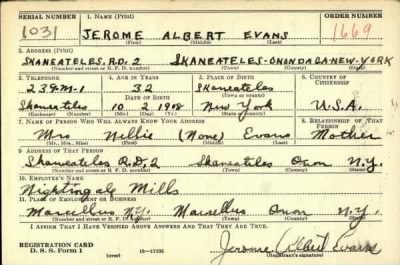 SERIAL NUMBER 1. NAME (Print) ORDER NUMBER
1031 JEROME ALBERT EVANS 1669
(First) (Middle) (Last)
2. ADDRESS (Print)
SKANEATELES, R.D. 2 SKANEATELES-ONONDAGA-NEW-YORK
(Number and street or R. F. D. number) (Town) (County) (State)
3. TELEPHONE 4. AGE IN YEARS 5. PLACE OF BIRTH 6. COUNTRY OF CITIZENSHIP
239-M-1 32 Skaneateles
DATE OF BIRTH (Town or county)
Skaneateles 10 2 1908 New York U.S.A.
(Exchange) (Number) (Mo.) (Day) (Yr.) (State or country)
7. NAME OF PERSON WHO WILL ALWAYS KNOW YOUR ADDRESS 8. RELATIONSHIP OF THAT PERSON
Mrs Nellie (None) Evans Mother
(Mr., Mrs., Miss) (First) (Middle) (Last)
9. ADDRESS OF THAT PERSON
Skaneateles R.D, 2 Skaneateles Onon N.Y.
(Number and street or R. F. D. number) (Town) (County) (State)
10. EMPLOYER'S NAME
Nightingale Mills
11. PLACE OF EMPLOYMENT OR BUSINESS
Marcellus N.Y. Marcellus Onon N.Y.
(Number and street or R. F. D. number) (Town) (County) (State)
I AFFIRM THAT I HAVE VERIFIED ABOVE ANSWERS AND THAT THEY ARE TRUE.
REGISTRATION CARD
D. S. S. Form 1 16-17105 Jerome Albert Evans
(over) (Registrant's signature)